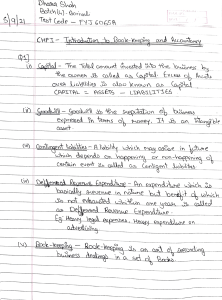 Dhara Shah
Batch(4) - Annual
5/9/21 Test Code - FYJ 6065A
CHP 1 - Introduction to Book-keeping and Accountancy
Q1]
(i) Capital - The total amount invested into the business by
the owner is called as Capital. Excess of Assets
over liabilities is also known as Capital
CAPITAL = ASSETS - LIABILITIES
(ii) Goodwill - Goodwill is the reputation of business
expressed in terms of money. It is an intangible
asset.
(iii) Contingent liabilities - A liability which may arise in future
which depends on happening or non-happening of
certain event is called as Contingent liabilities
(iv) Deferred Revenue Expenditure - An expenditure which is
basically revenue in nature but benefit of which
is not exhausted within one year is called
as Deferred Revenue Expenditure.
Eg. Heavy legal expenses. Heavy expenditure on
advertising
(v) Book-keeping - Book-keeping is an art of recording
business dealings in a set of Books